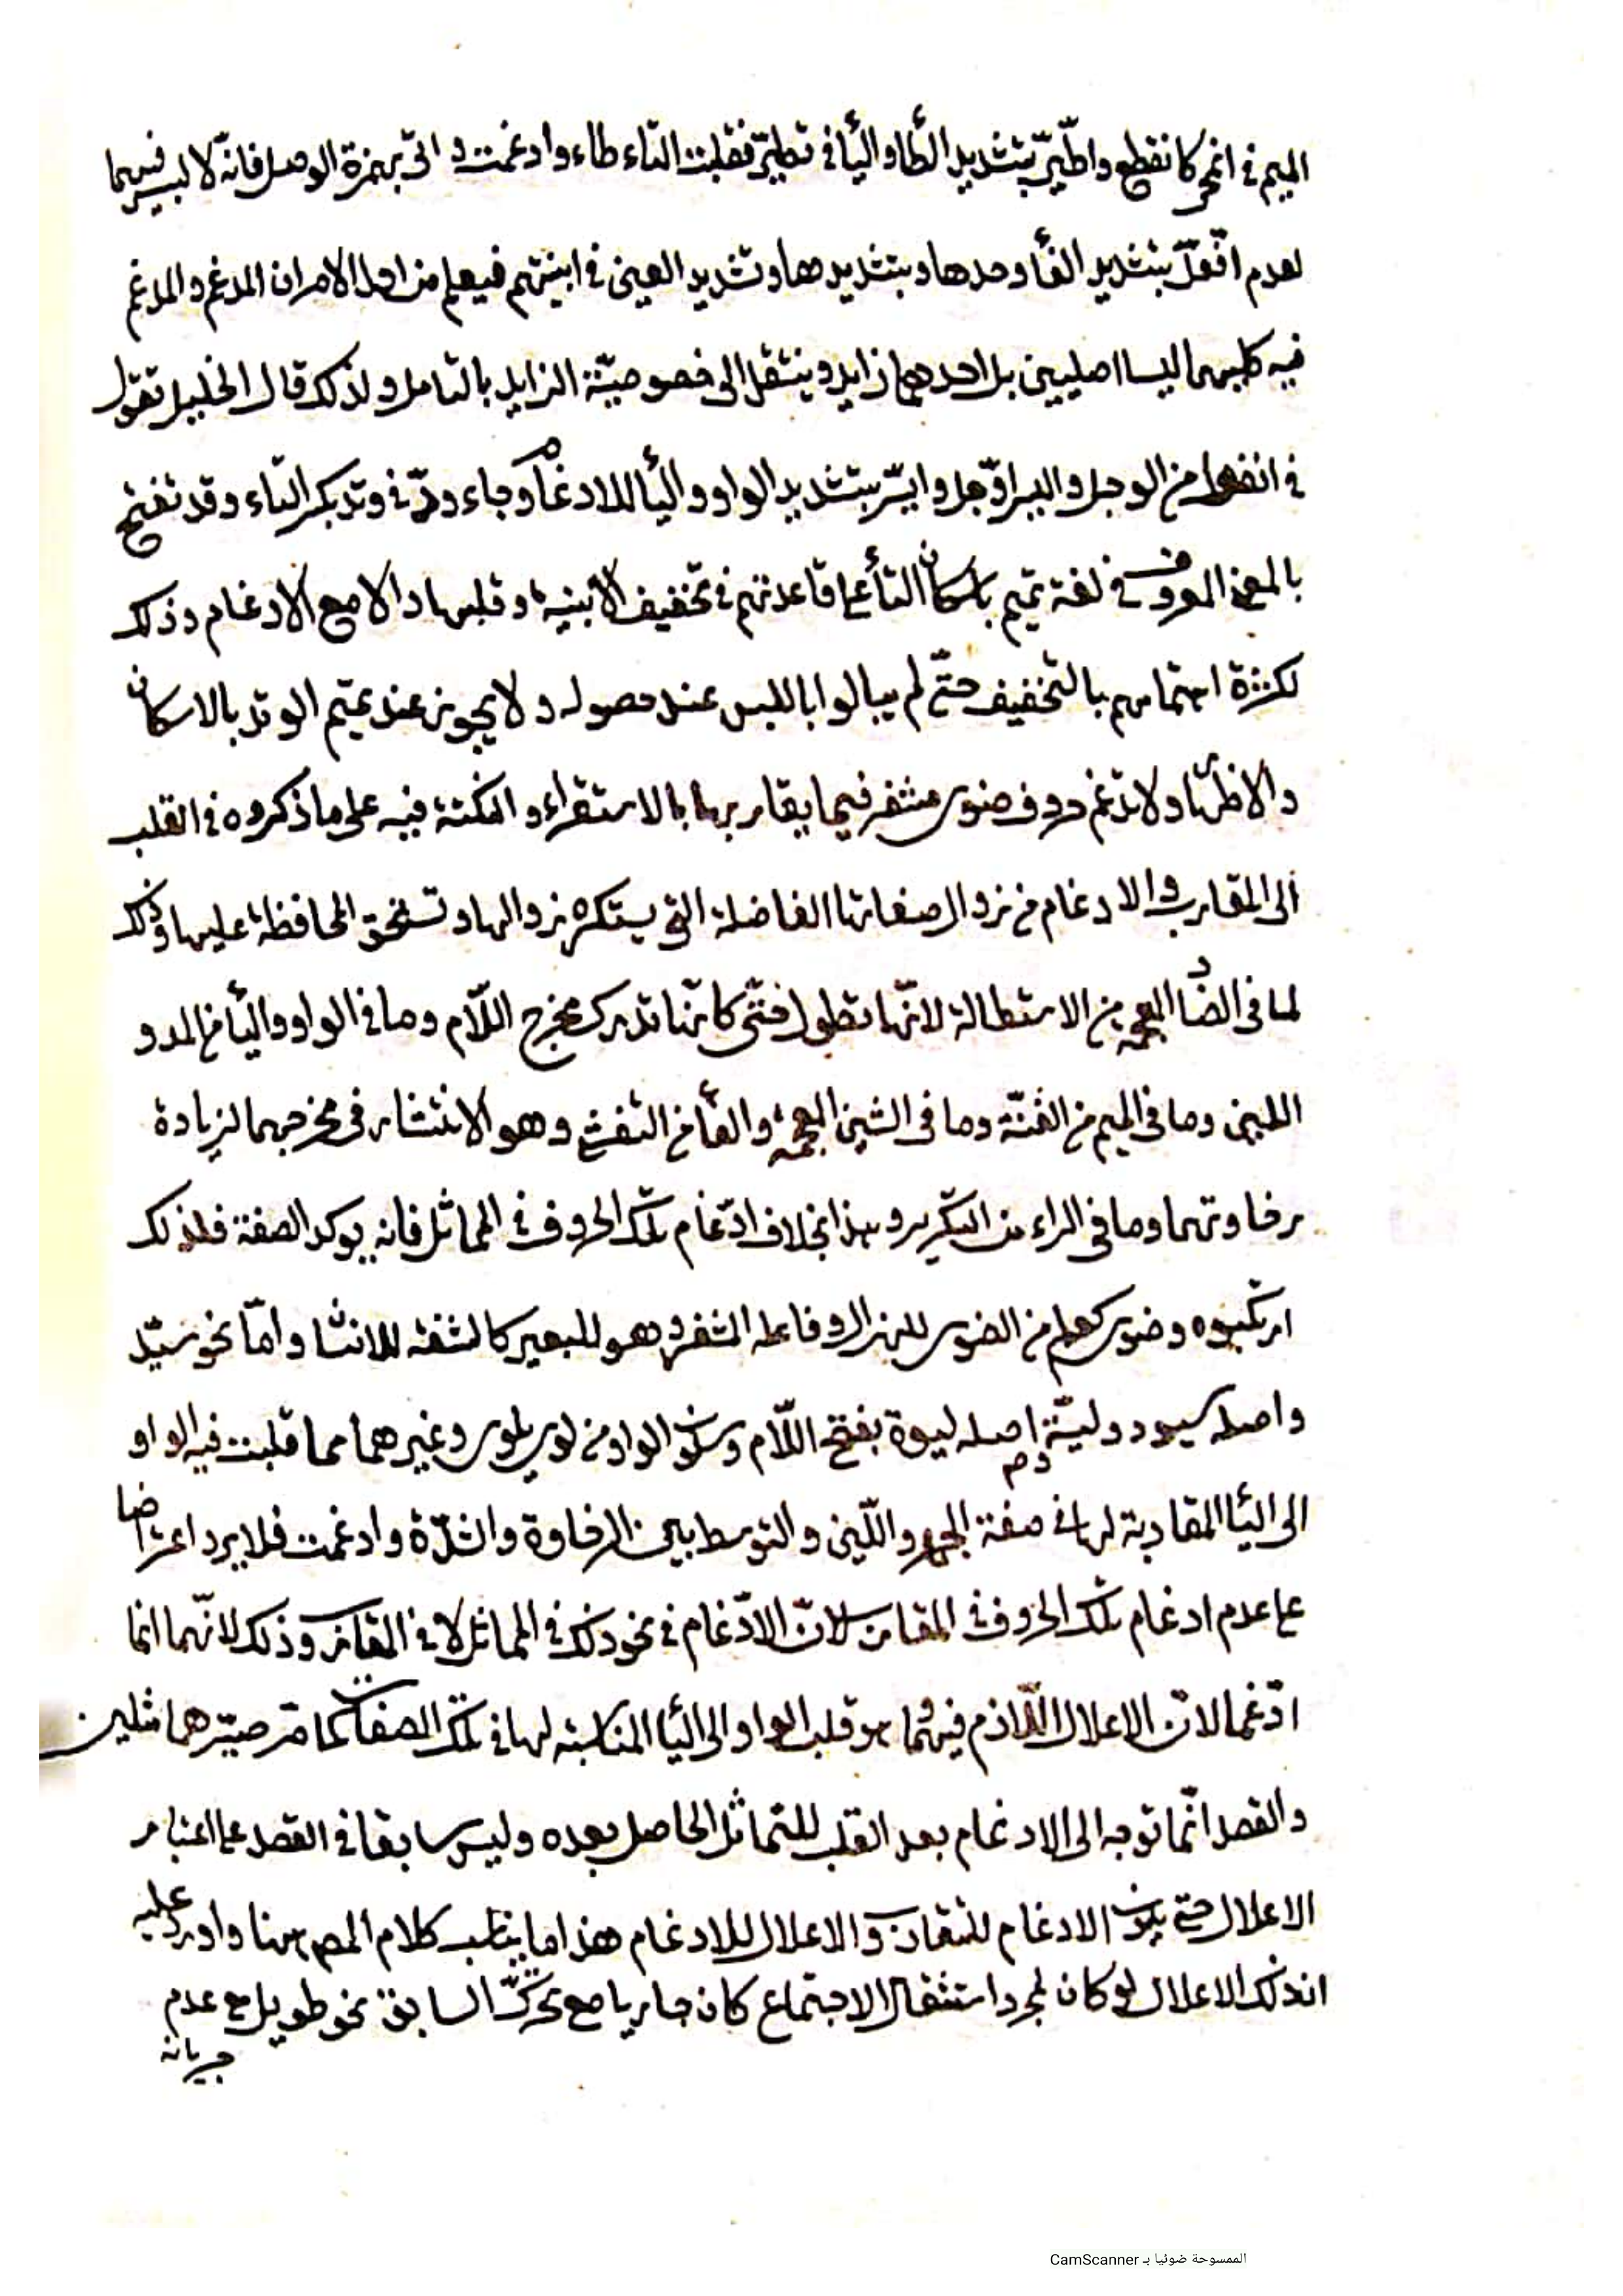 الميم في انمحى كانقطع واطّيّر بتشديد الطّاء والياء في تطيّر فقلبت التاء طاء وادغمت و اتى بهمزة الوصل فانّه لا لبس فيهما
لعدم افّعلّ بتشديد الفاء وحدها وبتشديدها وتشديد العين في ابنيتهم فيعلم من اول الامر ان المدغم والمدغم
فيه كليهما ليسا اصليين بل احدهما زايد وينتقل الى خصوصيّة الزايد بالتامل ولذلك قال الخليل تقول
في انفعل من الوجل واليسر اوّجل وايّسر بتشديد الواو والياء للادغام وجاء ودّ في وتد بكسر التاء وقد تفتح
بالمعنى المعروف في لغة تميم باسكان التاء على قاعدتهم في تخفيف الابنية وقلبها دالا مع الادغام وذلك
لكثرة اهتمامهم بالتخفيف حتّى لم يبالوا باللبس عند حصوله ولا يجوز عند تميم الوتد بالاسكان
والاظهار ولا تدغم حروف ضوى مشفر فيما يقاربها بالاستقراء والنكتة فيه على ما ذكروه في القلب
الى المقارب والادغام من زوال صفاتها الفاضلة التي يستكره زوالها وتستحق المحافظة عليها وذلك
لما في الضاد المعجمة من الاستطالة لانّها تطول حتّى كانّها تدرك مخرج اللّام وما في الواو والياء من المد و
اللين وما في الميم من الغنّة وما في الشين المعجمة والفاء من التفشي وهو الانتشار في مخرجهما لزيادة
رخاوتهما وما في الراء من التكرير وهذا بخلاف ادّغام تلك الحروف في المماثل فانه يوكد الصفة فلذلك
ارتكبوه وضوى كعلم من الضوى للهزال وفاعله المشفر وهو للبعير كالشفة للانسان وامّا نحو سيّد
واصله سيود وليّة واصله لوية بفتح اللّام وسكون الواو من لوى يلوى وغيرهما مما قلبت فيه الواو
الى الياء المقاربة لها في صفة الجهر واللّين والتوسط بين الرخاوة والشدّة وادغمت فلا يرد اعتراضا
على عدم ادغام تلك الحروف في المقارب لانّ الادّغام في نحو ذلك في المماثل لا في المقارب وذلك لانّهما انما
ادّغما لانّ الاعلال اللّازم فيهما هو قلب الواو الى الياء المناسبة لها في تلك الصفات كما مر صيّرهما مثلين
والقصد انّما توجه الى الادغام بعد القلب للتماثل الحاصل بعده وليس سابقا في القصد على اعتبار
الاعلال حتى يكون الادغام للتقارب والاعلال للادغام هذا ما يناسب كلام المص ههنا واورد عليه
ان ذلك الاعلال لو كان لمجرد استثقال الاجتماع كان جاريا مع تحرّك السابق نحو طويل مع عدم
جريانه
الممسوحة ضوئيا بـ CamScanner